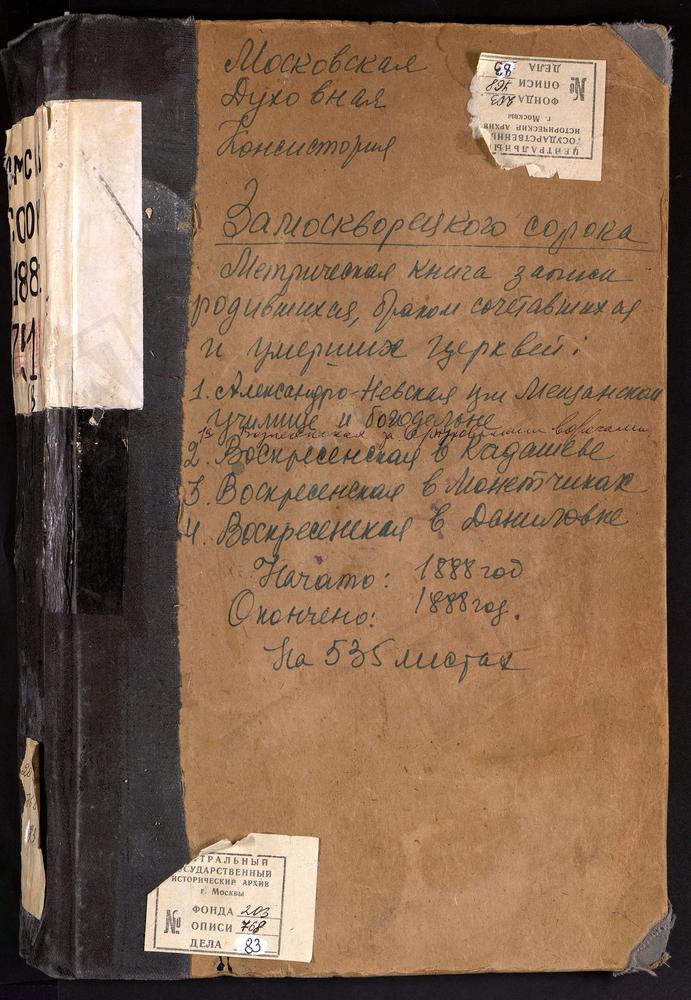 Московская
Духовная
Консистория
ЦЕНТРАЛЬНЫ
ГОСУДАРСТВЕНН
ИСТОРИЧЕСКИЙ АРХИВ
г. Москвы
№
ФОНДА 203
ОПИСИ 768
ДЕЛА 83
Замоскворецкого сорока
Метрическая книга записи
родившихся, браком сочетавшихся
и умерших церквей:
1. Александро-Невская при Мещанском
училище и богодельне
за Серпуховскими воротами
2. Воскресенская в Кадашеве
3. Воскресенская в Монетчиках
4. Воскресенская в Даниловке
Начато: 1888 год
Окончено: 1888 год.
На 535 листах
188
ТРАЛЬНЫЙ
ОСУДАРСТВЕННЫЙ
ИСТОРИЧЕСКИЙ АРХИВ
г. Москвы
№
ФОНДА 203
ОПИСИ 768
ДЕЛА 83